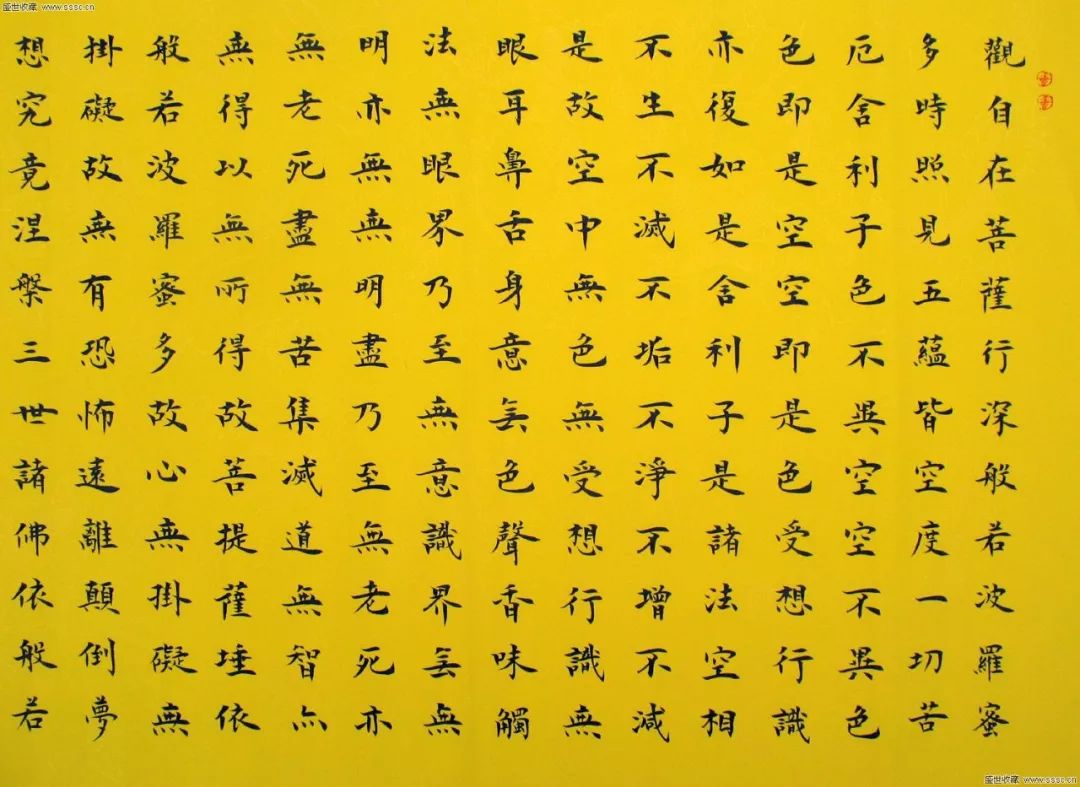 盛世收藏 www.sssc.cn
觀自在菩薩行深般若波羅蜜
多時照見五蘊皆空度一切苦
厄舍利子色不異空空不異色
色即是空空即是色受想行識
亦復如是舍利子是諸法空相
不生不滅不垢不淨不增不減
是故空中無色無受想行識無
眼耳鼻舌身意無色聲香味觸
法無眼界乃至無意識界無無
明亦無無明盡乃至無老死亦
無老死盡無苦集滅道無智亦
無得以無所得故菩提薩埵依
般若波羅蜜多故心無掛礙無
掛礙故無有恐怖遠離顛倒夢
想究竟涅槃三世諸佛依般若
盛世收藏 www.sssc.cn